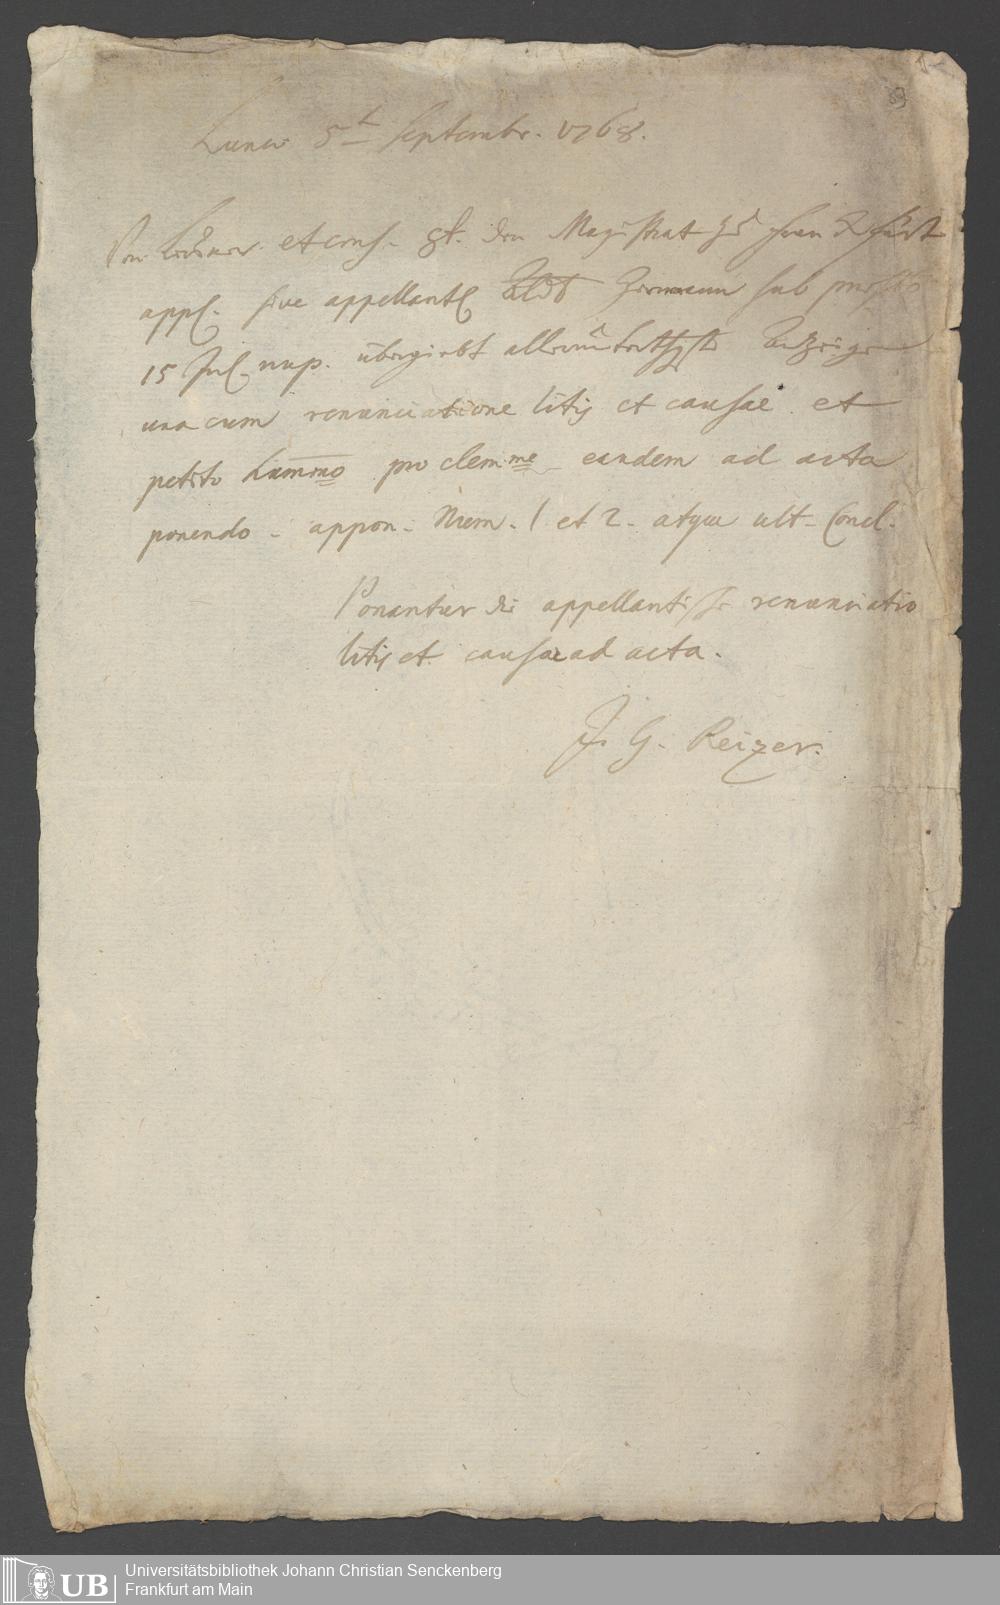 Lunae 5t Septembr. 1768.
et cons. den Magistrat zu
appl. sive appellantl. Hermann sub
15 Jul. nup. übergiebt allerunterthgste Anzeige
una cum renunciatione litis et causae et
petito hummo pro clemme eandem ad acta
ponendo. appon. Num. 1 et 2. atque ult. Concl.
Ponantur die appellantische renunciatio
litis et causae ad acta.
J. G. Reizer.
UB
Universitätsbibliothek Johann Christian Senckenberg
Frankfurt am Main